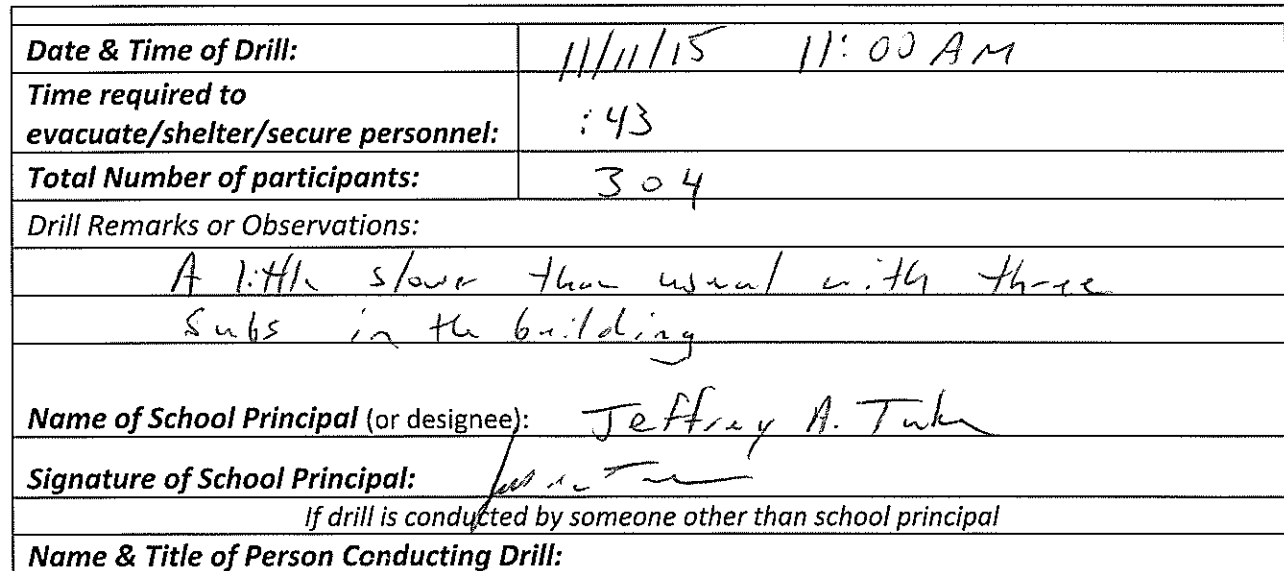 Date & Time of Drill: 11/11/15 11:00 AM
Time required to
evacuate/shelter/secure personnel: :43
Total Number of participants: 304
Drill Remarks or Observations:
A little slower than usual with three
subs in the building
Name of School Principal (or designee): Jeffrey A.
Signature of School Principal:
If drill is conducted by someone other than school principal
Name & Title of Person Conducting Drill: